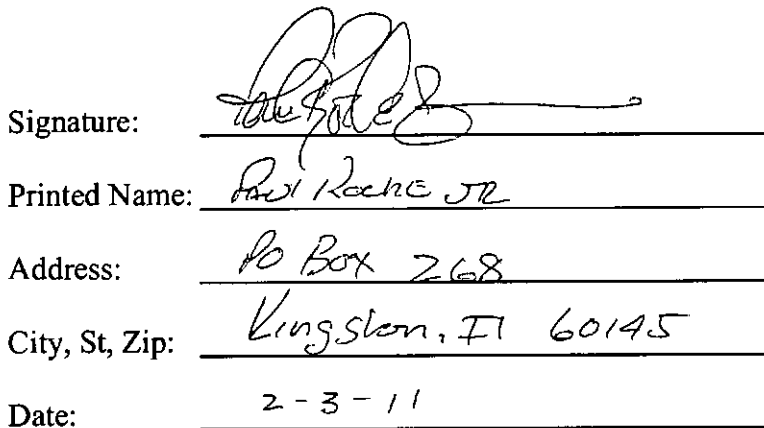 Signature:
Printed Name: Paul Roche JR
Address: PO Box 268
City, St, Zip: Kingston, Il 60145
Date: 2-3-11